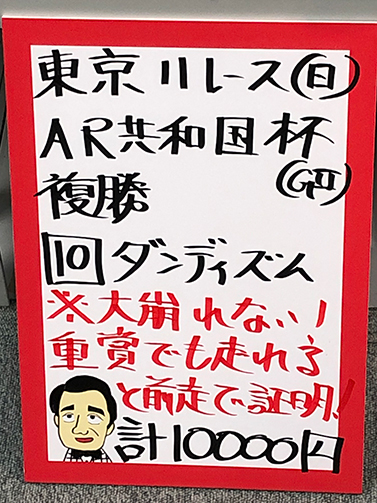 東京11レース(日)
AR共和国杯
(GII)
複勝
10 ダンディズム
※大崩れない!
重賞でも走れる
と前走で証明!
計10000円